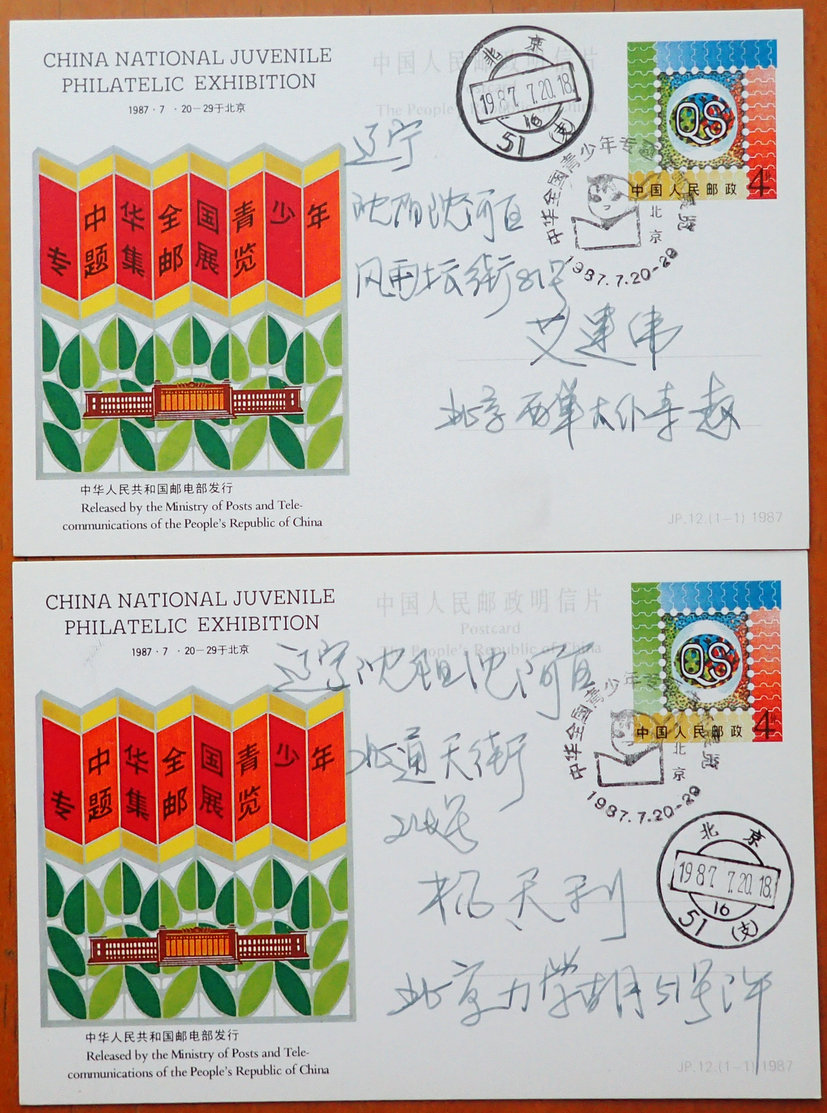 CHINA NATIONAL JUVENILE
PHILATELIC EXHIBITION
1987·7·20-29于北京
中华全国青少年
专题集邮展览
中华人民共和国邮电部发行
Released by the Ministry of Posts and Tele-
communications of the People's Republic of China
中国人民邮政明信片
The People's
China
北京
1987.7.20.18
16
51(支)
QS
中国人民邮政
4
中华全国青少年专题
北京
1987.7.20-29
辽宁
沈阳沈河区
风雨坛街81号
艾建伟
北京西单
JP.12.(1-1) 1987
CHINA NATIONAL JUVENILE
PHILATELIC EXHIBITION
1987·7·20-29于北京
中华全国青少年
专题集邮展览
中华人民共和国邮电部发行
Released by the Ministry of Posts and Tele-
communications of the People's Republic of China
中国人民邮政明信片
Postcard
The People's Republic of China
QS
中国人民邮政
4
中华全国青少年专
北京
1987.7.20-29
辽宁沈阳沈河区
北通天街
号
杨天利
北京力学胡同51号
北京
1987.7.20.18
16
51(支)
JP.12.(1-1) 1987